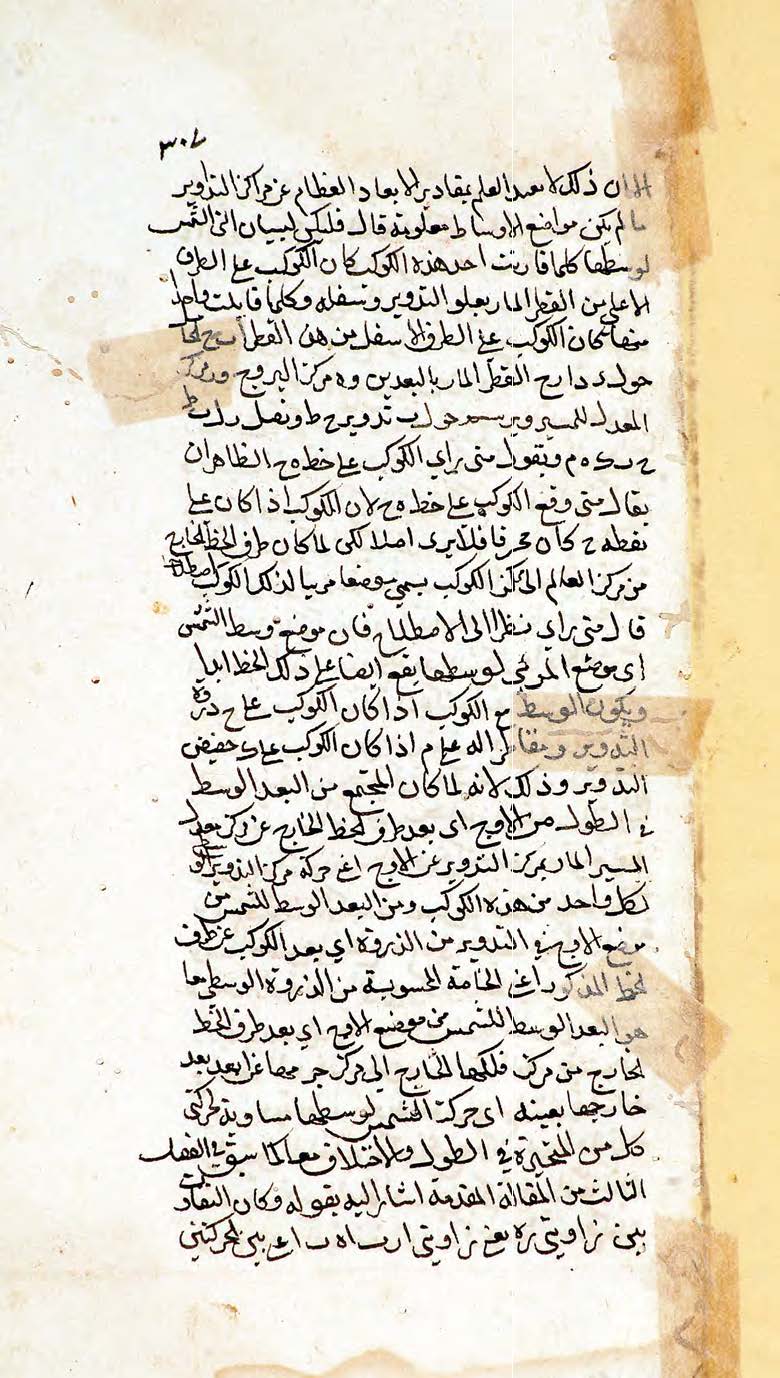 ٣٠٧
الا ان ذلك لا بعد العلم بمقادير الابعاد العظام عن مراكز التداوير
ما لم يكن مواضع الاوساط معلومة قال فليكن لبيان ان الشمس
لوسطها كلما قارنت احد هذه الكوكب كان الكوكب على الطرف
الاعلى من القطر المار بعلو التدوير وسفله وكلما قابلت واحدا
منها كان الكوكب على الطرف الاسفل من هذا القطر ا ب ج
حول د دا رح القطر المار بالبعدين و ه مركز البروج و ر مركز
المعدل للمسير ونرسم حول ب تدوير ح ط ونصل
ونقول متى راى الكوكب على خط ه ح الظاهر ان
يقال متى وقع الكوكب على خط ه ح لان الكوكب اذا كان على
نقطة ح كان محترقا فلا يرى اصلا لكن لما كان طرف الخط الخارج
من مركز العالم الى مركز الكوكب يسمى موضعا مرييا لذلك الكوكب اصطلاحا
قال متى راي نظرا الى الاصطلاح فان موضع وسط الشمس
اى موضع المرئى لوسطها يقع ايضا على ذلك الخط ابدا
ويكون الوسط مع الكوكب اذا كان الكوكب على ح ذروة
التدوير ومقاطرا له على م اذا كان الكوكب على ك حضيض
التدوير وذلك لانه لما كان المجتمع من البعد الوسط
في الطول من الاوج اى بعد طرف الخط الخارج عن مركز معدل
المسير المار بمركز التدوير عن الاوج اعني حركة مركز التدوير
لكل واحد من هذه الكوكب ومن البعد الوسط للشمس من
موضع الاوج في التدوير من الذروة اي بعد الكوكب عن طرف
الخط المذكور اعني الخاصة المحسوبة من الذروة الوسطى معا
هو البعد الوسط للشمس من موضع الاوج اي بعد طرف الخط
الخارج من مركز فلكها الخارج الى مركز جرمها عن ابعد بعد
خارجها بعينه اى حركة الشمس لوسطها مساوية لحركتى
كل من المتحيرة في الطول والاختلاف معا لما سبق في الفصل
الثالث من المقالة المقدمة اشار اليه بقوله وكان التفاوت
بين زاويتى ر ه يعني زاويتى ا ر ب ا ه ب اعني بين الحركتين